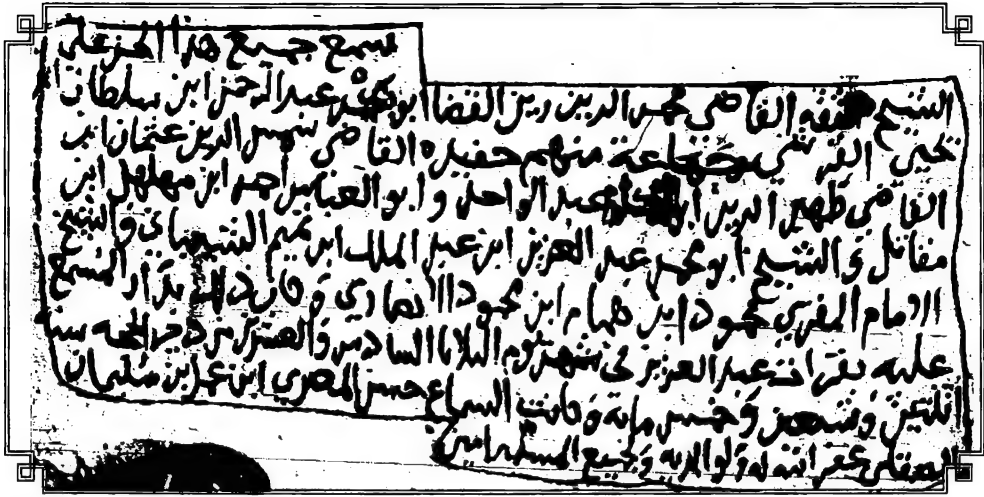 سمع جميع هذا الجز على
الشيخ الفقه القاضي محمد الدين زين القضا ابو بكر محمد عبد الرحمن ابن سلطان ابن
يحيى القرشي جماعة منهم حفيده القاضي شمس الدين عثمان ابن
القاضي ظهير الدين عبد الواحد و ابو العباس احمد ابن مهلهل ابن
مقاتل و الشيخ ابو محمد عبد العزيز ابن عبد الملك ابن تميم الشيباني و الشيخ
الامام المقري محمود ابن همام ابن محمود الانصاري و المسمع
عليه بقراة عبد العزيز في شهر يوم الثلاثا السادس و العشرين من ذي الحجه سنة
اثنتين و تسعين و خمس مايه و كاتب السماع حسن المصري ابن محمد ابن سليمان
الصقلي غفر الله له و لوالديه و لجميع المسلمين امين